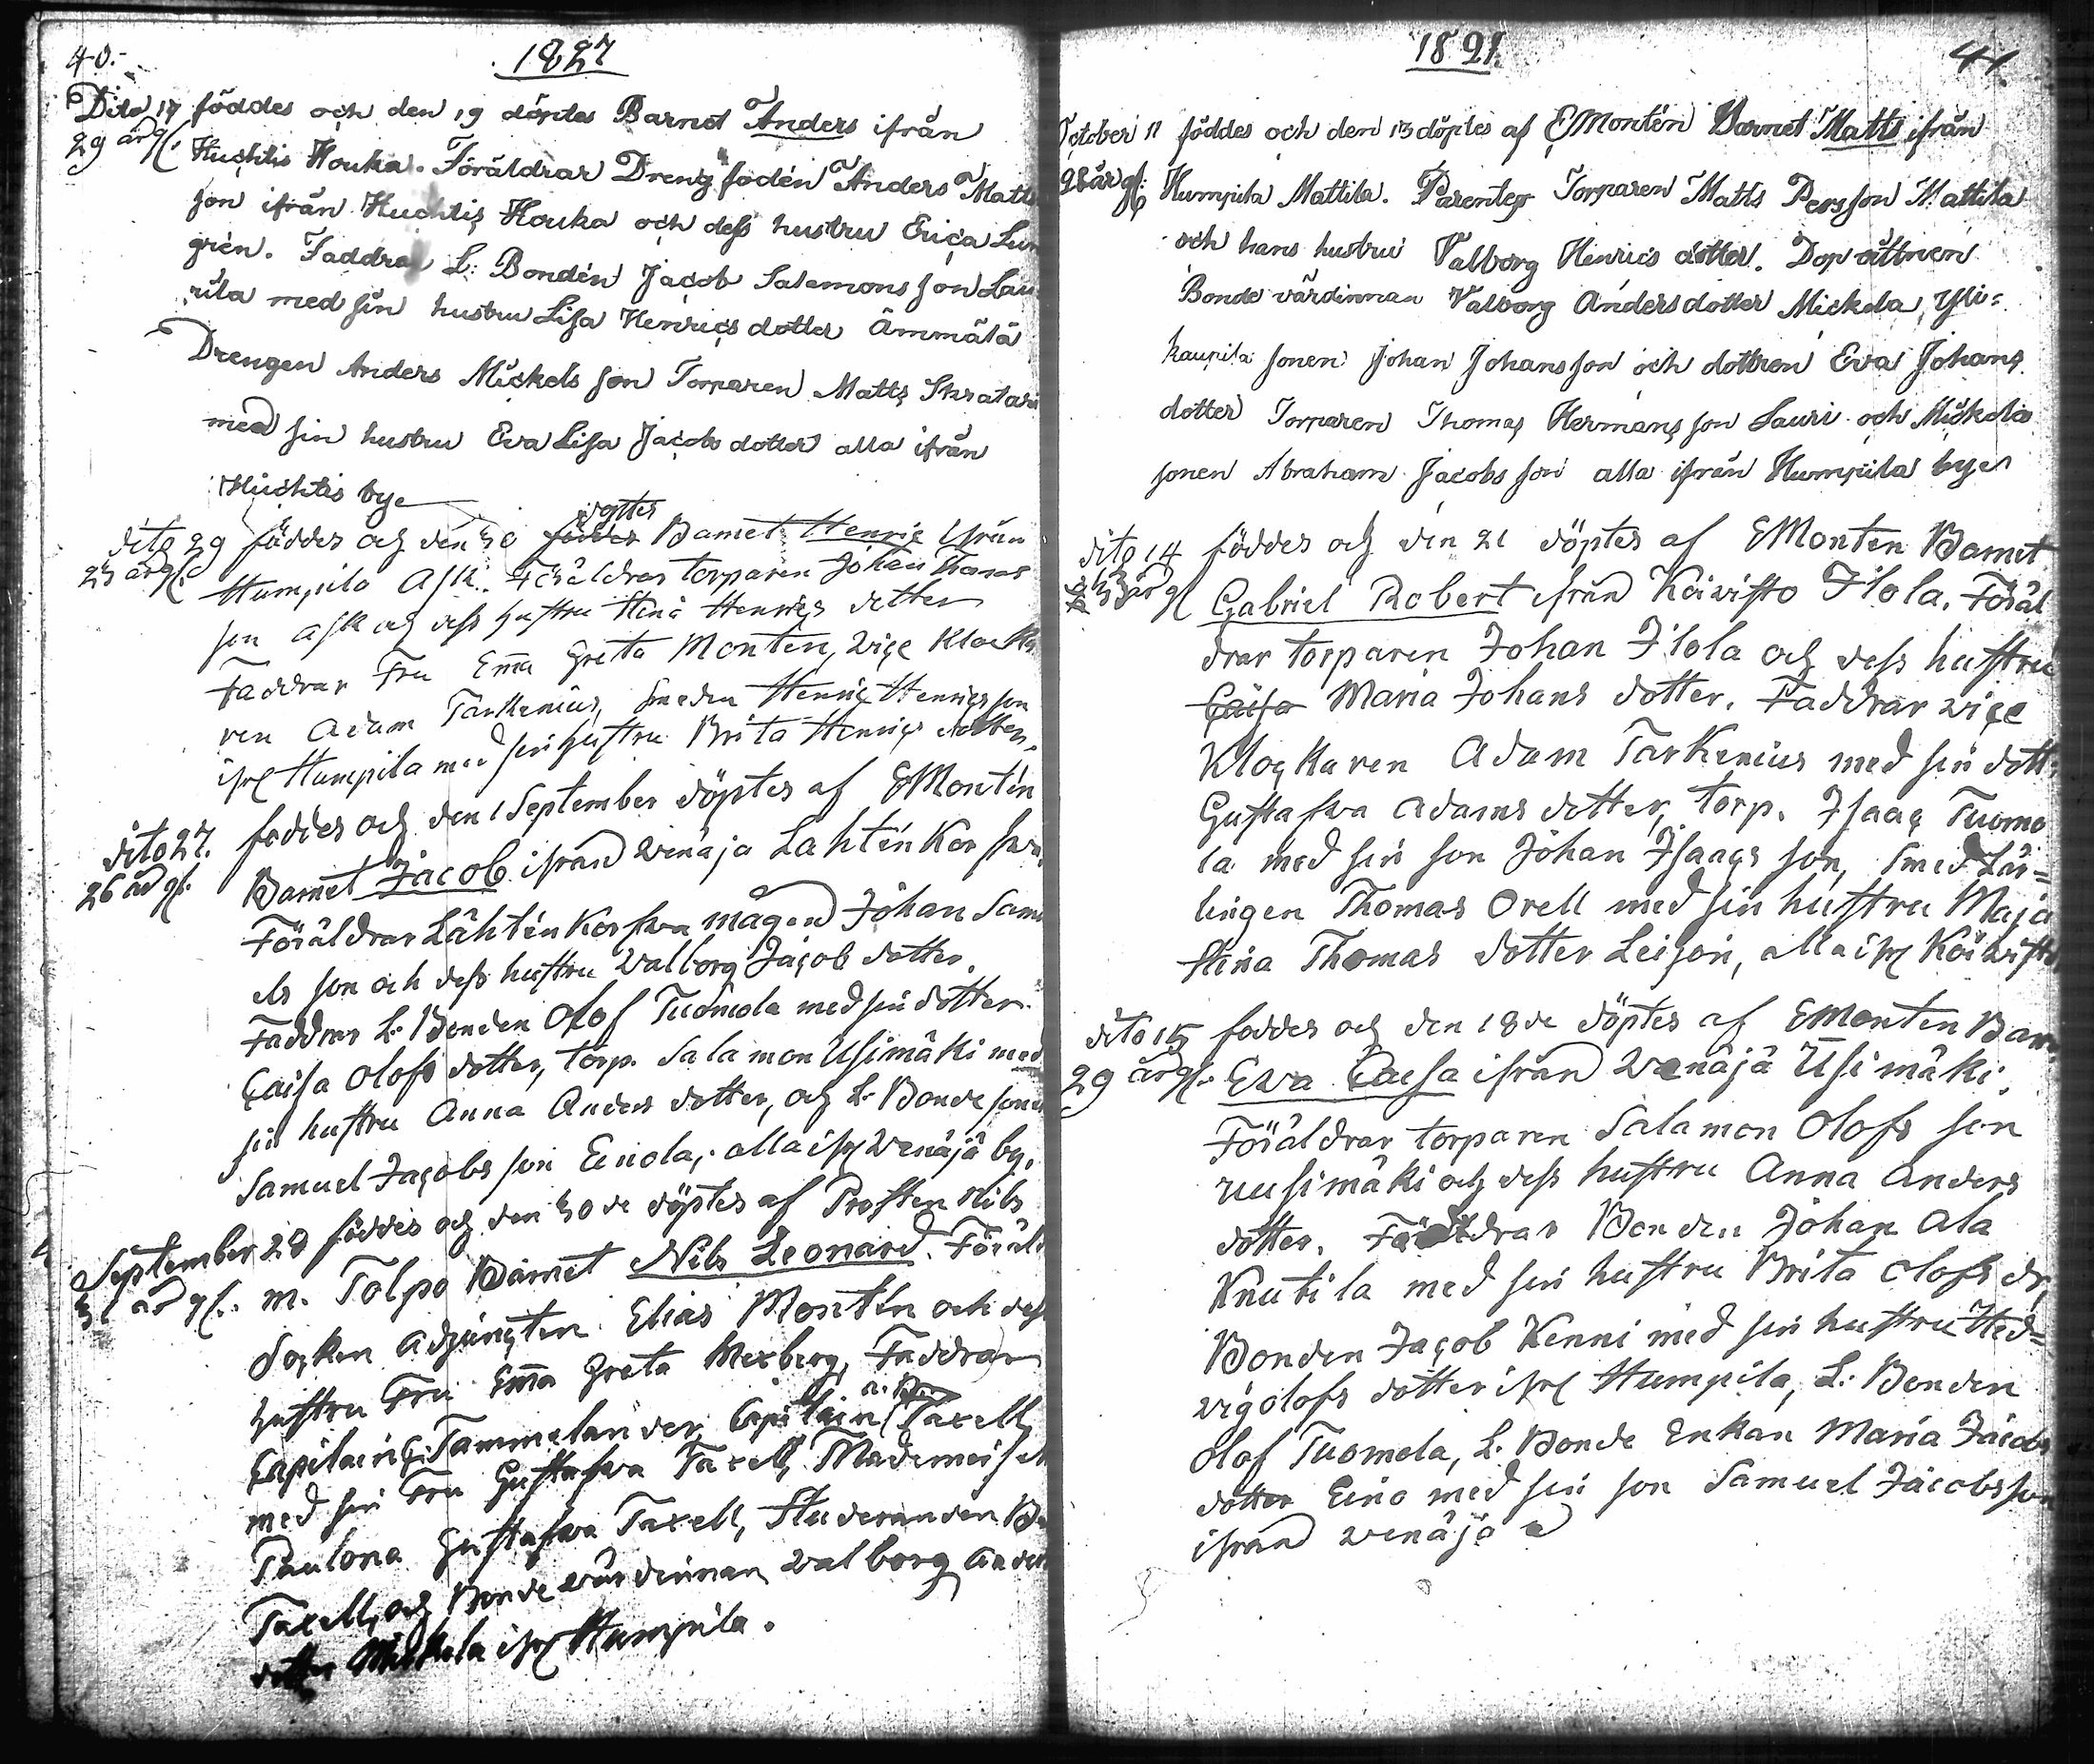 40.
1827
Dito 17 föddes och den 19 döptes Barnet Anders ifrån
29 år gl. Huchtis Houka. Föräldrar Dreng Anders Matts
son ifrån Huchtis Houka och dess hustru Erica Lun
grén. Faddrar L: Bonden Jacob Salomons son Lau
rila med sin hustru Lisa Henrics dotter Ämmälä
Drengen Anders Mickels son Torparen Matts
med sin hustru Eva Lisa Jacobs dotter alla ifrån
Huchtis bye
dito 29 föddes och den 30 föddes döptes Barnet Henric ifrån
23 år gl. Humpila Ask. Föräldrar torparen Johan Thomas
son Ask och dess hustru Stina Henrics dotter
Faddrar Fru Em̅a Greta Monten, vice Klocka
ren Adam Tarkenius, smeden Henric Henrics son
ifr Humpila med sin hustru Brita Henrics dotter.
dito 27. föddes och den 1 September döptes af EMontén
26 år gl. Barnet Jacob ifrån Wenäja Lahtinkorfwa,
Föräldrar Lähtinkorfwa mågen Johan Samu
els son och dess hustru Walborg Jacob dotter.
Faddrar L: Bonden Olof Tuomola med sin dotter
Caisa Olofs dotter, torp. Salamon Usimäki med
sin hustru Anna Anders dotter, och L: Bonde sonen
Samuel Jacobs son Einola, alla ifr Wenäjä by.
September 28 föddes och den 30 de döptes af Prosten Nils
31 år gl. M. Tolpo Barnet Nils Leonard. Föräl
Socken Adjuncten Elias Montén och dess
hustru Fru Em̅a Greta Mexberg, Faddrar
Capitain G: Tammelander, Capitain Taxell
med sin Fru Gustafwa Taxell, Mademoisell
Paulona Gustafwa Taxell, Studeranden
Taxell, och Bonde wärdinnan Walborg Anders
dotter Mickela ifr Humpila.
1821.
41.
October 11 föddes och den 13 döptes af EMontén Barnet Matts ifrån
28 år gl: Humpila Mattila. Parentes Torparen Matts Persson Mattila
och hans hustru Valborg Henrics dotter. Dopvittnen
Bonde värdinnan Valborg Andersdotter Mickela, Yli=
kaupila sonen Johan Johansson och dottren Eva Johans
dotter Torparen Thomas Hermans son Lauri och Mickela
sonen Abraham Jacobs son alla ifrån Humpila bye
dito 14 föddes och den 21 döptes af EMonten Barnet
33 år gl Gabriel Robert ifrån Koiwisto Jlola. Föräl
drar torparen Johan Jlola och dess hustru
Caisa Maria Johans dotter. Faddrar vice
Klockaren Adam Tarkenius med sin dott.
Gustafwa Adams dotter, torp. Isaac Tuomo
la med sin son Johan Isaacs son, Smed Lär=
lingen Thomas Orell med sin hustru Maja
Stina Thomas dotter Leijon, alla ifr Koiwisto
dito 15 föddes och den 18 de döptes af EMonten Barn
29 år gl. Ewa Caisa ifrån Wenäjä Usimäki.
Föräldrar torparen Salamon Olofs son
uusimäki och dess hustru Anna Anders
dotter. Faddrar Bonden Johan Ala
Knutila med sin hustru Brita Olofs dr,
Bonden Jacob Kenni med sin hustru Hed=
vig Olofs dotter ifr Humpila, L: Bonden
Olof Tuomola, L: Bonde Enkan Maria Jacobs
dotter Eino med sin son Samuel Jacobsson
ifrån Wenäjä